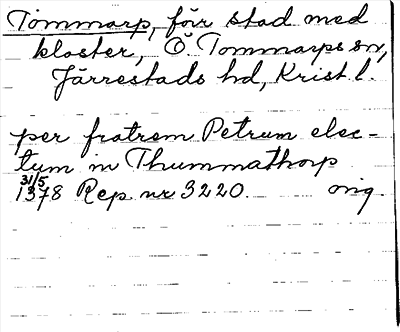 Tommarp, förr stad med
kloster, Ö. Tommarps sn,
Järrestads hd, Krist l.
per fratrem Petrum elec-
tum in Thummathorp
31/5
1378 Rep nr 3220. orig.